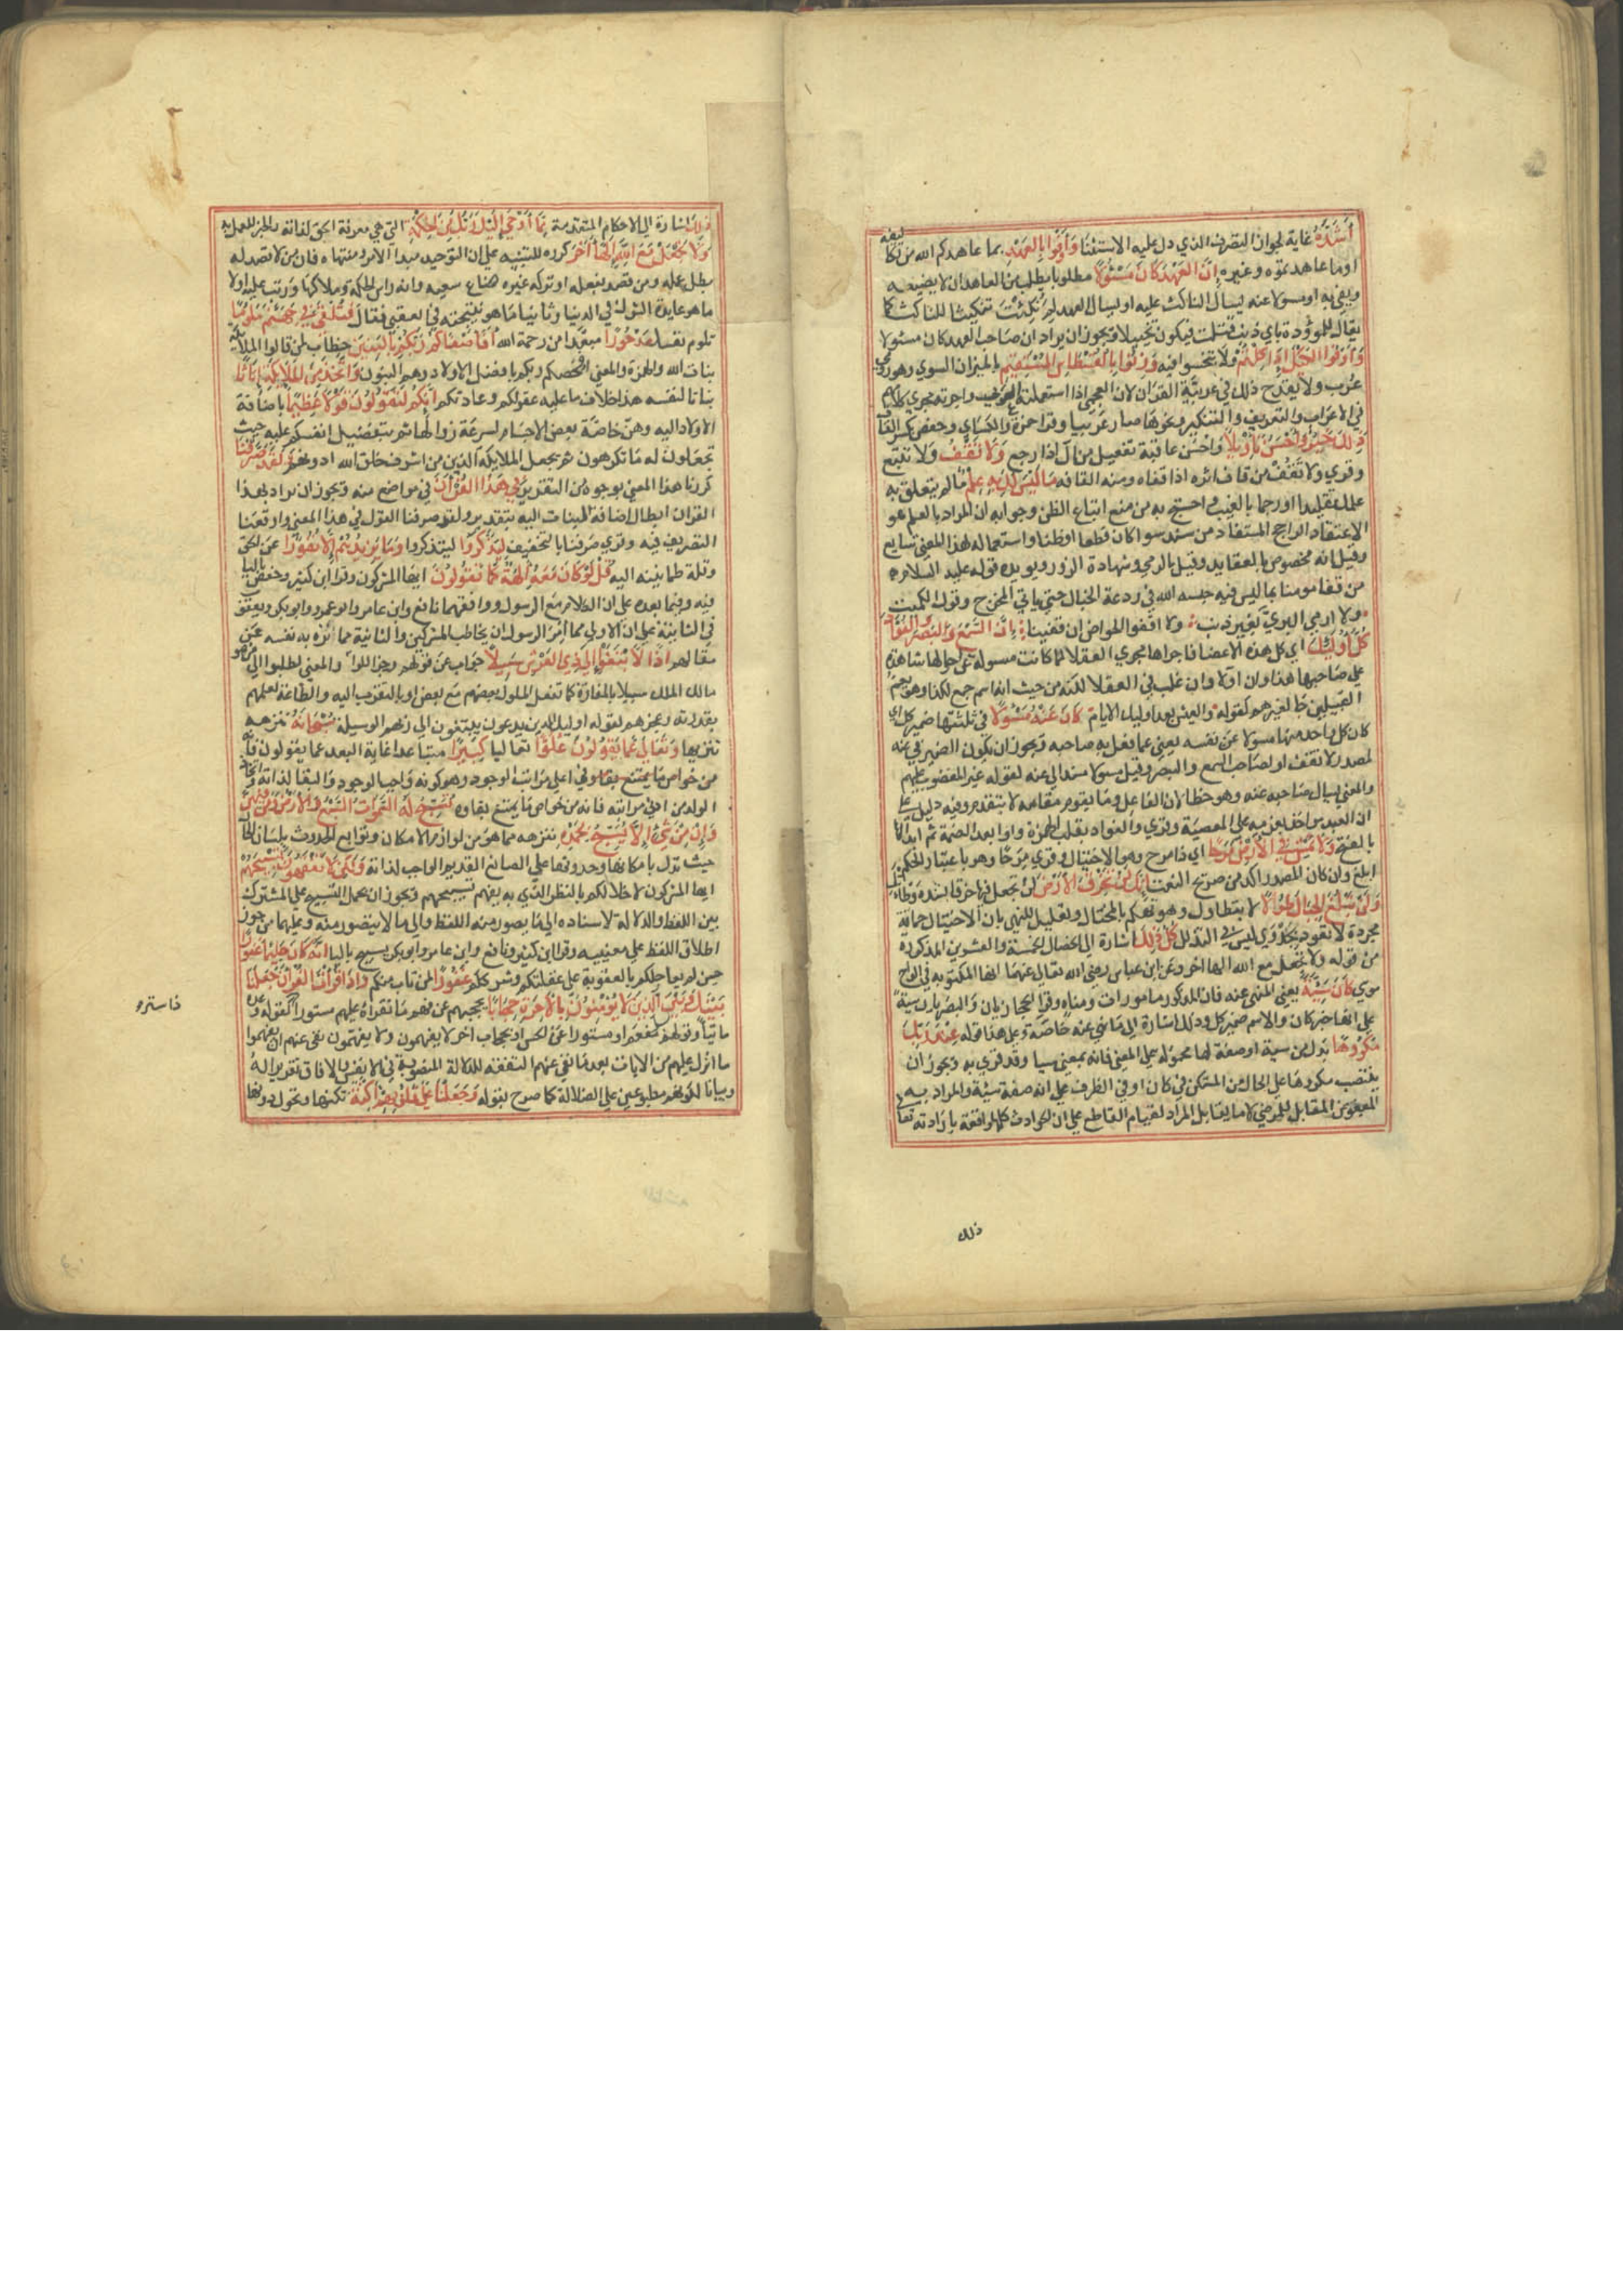 أَشُدَّهُ غاية لجواز التصرف الذي دل عليه الاستثنا وَأَوْفُوا بِالعَهْدِ بما عاهدكم الله من تكاليفه
او ما عاهدتموه وغيره إِنَّ العَهْدَ كَانَ مَسْئُولًا مطلوبا يطلب من العاهد ان لا يضيعه
ويفي به او مسولا عنه ليسال الناكث عليه او ليسال العهد لِمَ نُكِثْتَ تبكيتا للناكث كما
يقال للموؤدة باي ذنب قتلت فيكون تخييلا ويجوز ان يراد ان صاحب العهد كان مسئولا
وَأَوْفُوا الكَيْلَ إِذَا كِلْتُمْ ولا تبخسوا فيه وَزِنُوا بِالقِسْطَاسِ المُسْتَقِيمِ بالميزان السوي وهو رومي
عُرّب ولا يقدح ذلك في عربية القرآن لان العجمي اذا استعملته العرب واجرته مجري كلامهم
في الاعراب والتعريف والتنكير ونحوها صار عربيا وقرا حمزة والكساي وحفص بكسر القاف
ذَلِكَ خَيْرٌ وَأَحْسَنُ تَأْوِيلًا واحسن عاقبة تفعيل من آل اذا رجع وَلَا تَقْفُ ولا تتبع
وقري ولا تَقُفْ من قاف اثره اذا قفاه ومنه القافه مَا لَيْسَ لَكَ بِهِ عِلْمٌ ما لم يتعلق به
علمك تقليدا او رجما بالغيب واحتج به من منع اتباع الظن وجوابه ان المراد بالعلم هو
الاعتقاد الراجح المستفاد من سند سوا كان قطعا او ظنا واستعماله لهذا المعني شايع
وقيل انه مخصوص بالعقايد وقيل بالرمي وشهادة الزور ويويده قوله عليه السلام
من قفا مومنا بما ليس فيه حبسه الله في ردعة الخبال حتي ياتي المخرج وقول الكميت
ولا ارمي البريّ بغير ذنب ولا اقفو الحواضن ان قفينا إِنَّ السَّمْعَ وَالبَصَرَ وَالفُؤَادَ
كُلُّ أُولَئِكَ اي كل هذه الاعضا فاجراها مجري العقلا لما كانت مسولة عن احوالها شاهدة
علي صاحبها هذا وان اولا وان غلب في العقلا لكنه من حيث انه اسم جمع لذا وهو يعم
القبيلين جا لغيرهم كقوله والعيش بعد اوليك الايام كَانَ عَنْهُ مَسْئُولًا في ثلثتها ضمير كل اي
كان كل واحد منها مسولا عن نفسه يعني عما فعل به صاحبه ويجوز ان يكون الضمير في عنه
لمصدر لا تقف او لصاحب السمع والبصر وقيل مسولا مسند الي عنه كقوله غير المغضوب عليهم
والمعني يسال صاحبه عنه وهو خطا لان الفاعل وما يقوم مقامه لا يتقدم وفيه دليل علي
ان العبد مواخذ بعزمه علي المعصية وقري والفواد بقلب الهمزة واوا بعد الضمة ثم ابدالها
بالفتح وَلَا تَمْشِ فِي الأَرْضِ مَرَحًا اي ذا مرح وهو الاختيال وقري مرِحا وهو باعتبار الحكم
ابلغ وان كان المصدر اكد من صريح النعت إِنَّكَ لَنْ تَخْرِقَ الأَرْضَ لن تجعل فيها خرقا لشدة وطاتك
وَلَنْ تَبْلُغَ الجِبَالَ طُولًا بتطاولك وهو تهكم بالمختال وتعليل للنهي بان الاختيال حماقة
مجردة لا تعود بجدوي ليس في التذلل كُلُّ ذَلِكَ اشارة الي الخصال الخمسة والعشرين المذكورة
من قوله ولا تجعل مع الله الها اخر وعن ابن عباس رضي الله تعالي عنهما انها المكتوبه في الواح
موسي كَانَ سَيِّئَةً يعني المنهي عنه فان المذكور مامورات ومناه وقرا الحجازيان والبصريان سية
علي انها خبر كان والاسم ضمير كل وذلك اشارة الي ما نهي عنه خاصة وعلي هذا قوله عِنْدَ رَبِّكَ
مَكْرُوهًا بدل من سية او صفة لها محمولة علي المعني فانه بمعني سيا وقد قري به ويجوز ان
ينتصب مكروها علي الحال من المستكن في كان او في الظرف علي انه صفة سيئة والمراد به
المبغوض المقابل للمرضي لا ما يقابل المراد لقيام القاطع علي ان الحوادث كلها واقعة بارادته تعا
ذلك
ذَلِكَ اشارة الي الاحكام المتقدمة مِمَّا أَوْحَى إِلَيْكَ رَبُّكَ مِنَ الحِكْمَةِ التي هي معرفة الحق لذاته والخير للعمل به
وَلَا تَجْعَلْ مَعَ اللَّهِ إِلَهًا آخَرَ كرره للتنبيه علي ان التوحيد مبدا الامر ومنتهاه فان من لا قصد له
بطل عمله ومن قصد بفعله او تركه غيره ضاع سعيه وانه راس الحكمة وملاكها ورتب عليه اولا
ما هو عايدة الشرك في الدنيا وثانيا ما هو نتيجته في العقبي فقال فَتُلْقَى فِي جَهَنَّمَ مَلُومًا
تلوم نفسك مَدْحُورًا مبعدا من رحمة الله أَفَأَصْفَاكُمْ رَبُّكُمْ بِالبَنِينَ خطاب لمن قالوا الملايكة
بنات الله والهمزة والمعني افخصكم ربكم بافضل الاولاد وهم البنون وَاتَّخَذَ مِنَ المَلَائِكَةِ إِنَاثًا
بناتا لنفسه هذا خلاف ما عليه عقولكم وعادتكم إِنَّكُمْ لَتَقُولُونَ قَوْلًا عَظِيمًا باضافة
الاولاد اليه وهي خاصة بعض الاجسام لسرعة زوالها ثم بتفضيل انفسكم عليه حيث
تجعلون له ما تكرهون ثم بجعل الملايكة الذين من اشرف خلق الله ادونهم وَلَقَدْ صَرَّفْنَا
كررنا هذا المعني بوجوه من التقرير فِي هَذَا القُرْآنِ في مواضع منه ويجوز ان يراد بهذا
القران ابطال اضافة البنات اليه بتقدير ولقد صرفنا القول في هذا المعني او اوقعنا
التصريف فيه وقري صرفنا بالتخفيف لِيَذَّكَّرُوا ليتذكروا وَمَا يَزِيدُهُمْ إِلَّا نُفُورًا عن الحق
وقلة طمانينه اليه قُلْ لَوْ كَانَ مَعَهُ آلِهَةٌ كَمَا تَقُولُونَ ايها المشركون وقرا ابن كثير وحفص باليا
فيه وفيما بعده علي ان الكلام مع الرسول ووافقهما نافع وابن عامر وابو عمرو وابو بكر ويعقوب
في الثانية علي ان الاولي مما امر الرسول ان يخاطب المشركين والثانية مما نزه به نفسه عن
مقالهم إِذًا لَابْتَغَوْا إِلَى ذِي العَرْشِ سَبِيلًا جواب عن قولهم وجزا للو والمعني لطلبوا الي من هو
مالك الملك سبيلا بالمعازة كما تفعل الملوك بعضهم مع بعض او بالتقرب اليه والطاعة لعلمهم
بقدرته وعجزهم كقوله اوليك الذين يدعون يبتغون الي ربهم الوسيلة سُبْحَانَهُ تنزه
تنزيها وَتَعَالَى عَمَّا يَقُولُونَ عُلُوًّا تعاليا كَبِيرًا متباعدا غاية البعد عما يقولون فانه
الولد من ادني مراتبه فانه من خواص ما يمتنع بقاوه تُسَبِّحُ لَهُ السَّمَوَاتُ السَّبْعُ وَالأَرْضُ وَمَنْ فِيهِنَّ
وَإِنْ مِنْ شَيْءٍ إِلَّا يُسَبِّحُ بِحَمْدِهِ تنزهه مما هو من لوازم الامكان وتوابع الحدوث بلسان الحال
حيث تدل بامكانها وحدوثها علي الصانع القديم الواجب لذاته وَلَكِنْ لَا تَفْقَهُونَ تَسْبِيحَهُمْ
ايها المشركون لاخلالكم بالنظر الذي به يفهم تسبيحهم ويجوز ان يحمل التسبيح علي المشترك
بين اللفظ والدلالة لاسناده الي ما يصور منه اللفظ والي ما لا يتصور منه وعليهما من جوز
اطلاق اللفظ علي معنييه وقرا ابن كثير ونافع وابن عامر وابو بكر يسبح باليا إِنَّهُ كَانَ حَلِيمًا غَفُورًا
حين لم يعاجلكم بالعقوبة علي غفلتكم وشرككم غَفُورًا لمن تاب منكم وَإِذَا قَرَأْتَ القُرْآنَ جَعَلْنَا
بَيْنَكَ وَبَيْنَ الَّذِينَ لَا يُؤْمِنُونَ بِالآخِرَةِ حِجَابًا يحجبهم عن فهم ما تقراه عليهم مستورا كقوله وعده
ماتيا وقولهم سيل مفعم او مستورا عن الحس او بحجاب اخر لا يفهمون ولا يفهمون نفي عنهم ان يفهموا
ما انزل عليهم من الايات بعد ما نفي عنهم التفقه للدلالة المنصوبة في الانفس والافاق تقريرا له
وبيانا لكونهم مطبوعين علي الضلالة كما صرح بقوله وَجَعَلْنَا عَلَى قُلُوبِهِمْ أَكِنَّةً تكنها وتحول دونها